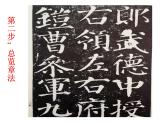 第二步，总览章法
郎武德中授
右領左右府
鎧曹參軍九